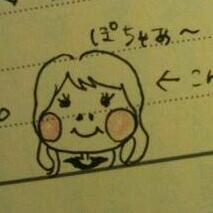 ぽちゃあ〜
← こん